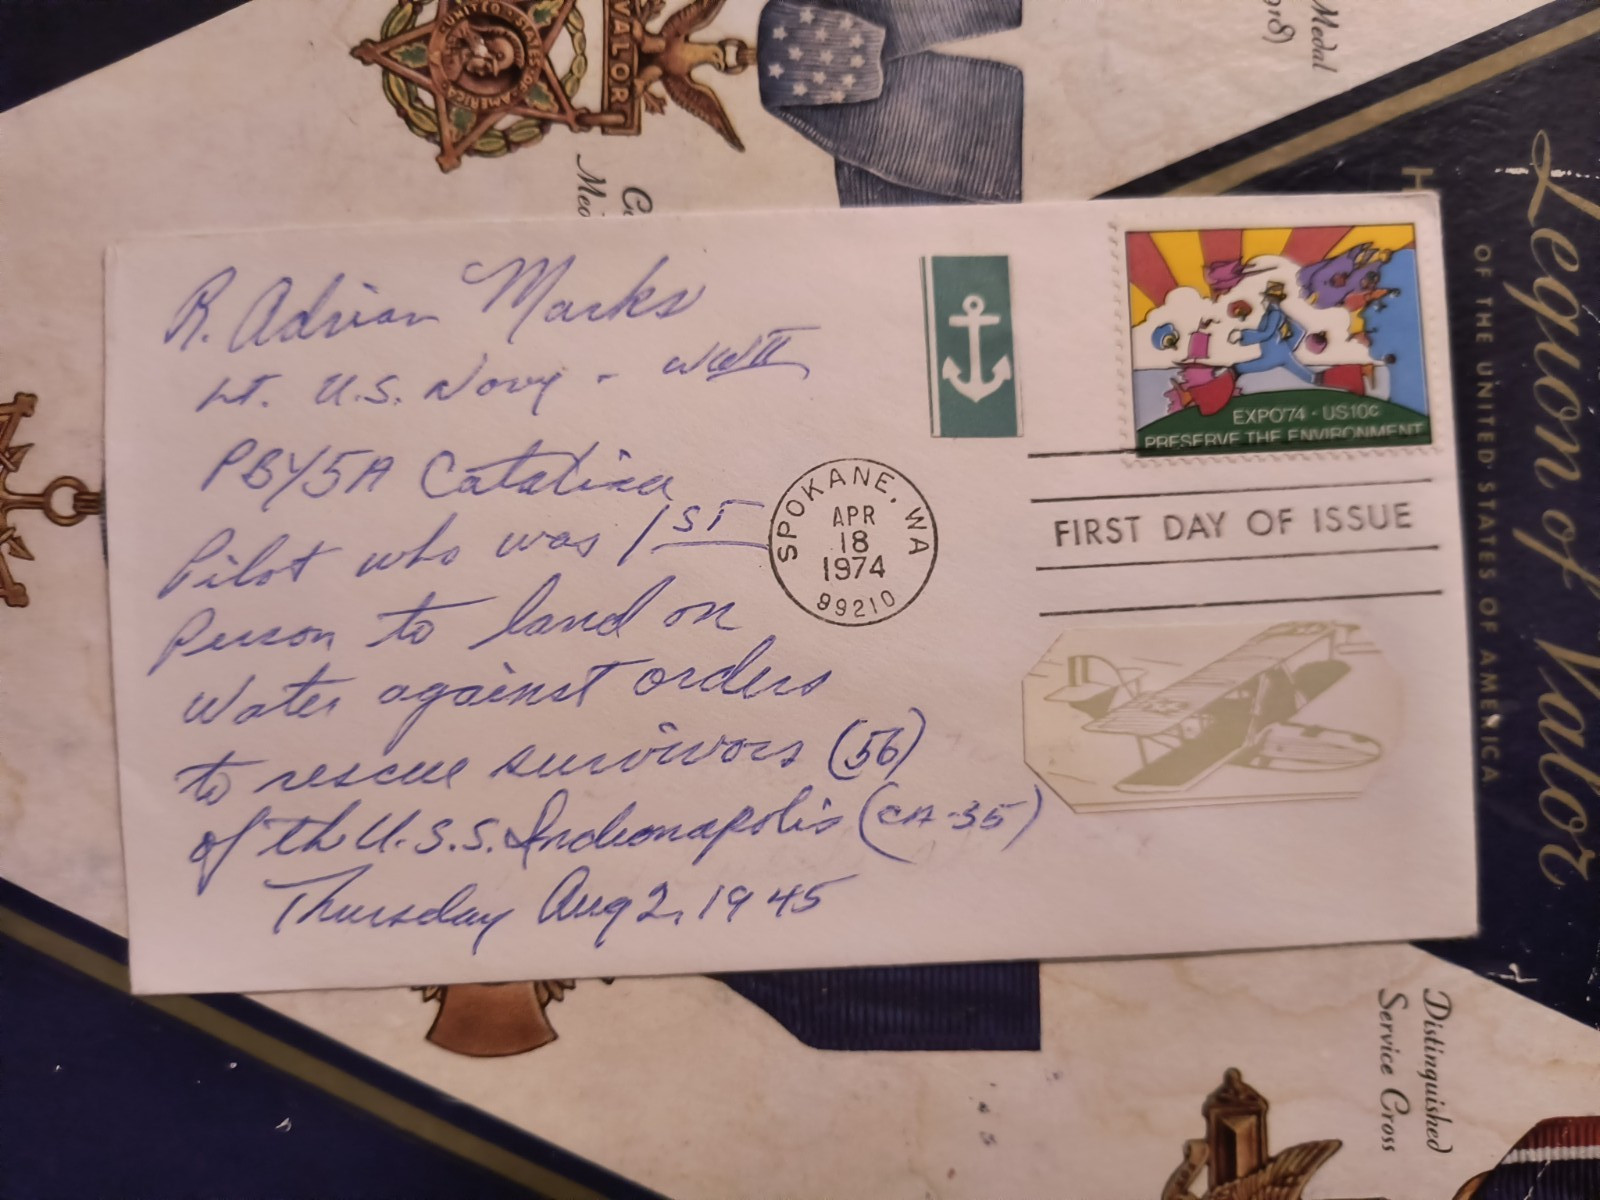 R. Adrian Marks
Lt. U.S. Navy - WWII
PBY5A Catalina
Pilot who was 1ST
Person to land on
Water against orders
to rescue survivors (56)
of th U.S.S. Indianapolis (CA-35)
Thursday Aug 2, 1945
EXPO'74 · US10c
PRESERVE THE ENVIRONMENT
SPOKANE, WA
APR
18
1974
99210
FIRST DAY OF ISSUE
UNITED STATES OF AMERICA
VALOR
Medal
1918)
Legion of Valor
OF THE UNITED STATES OF AMERICA
Distinguished
Service Cross